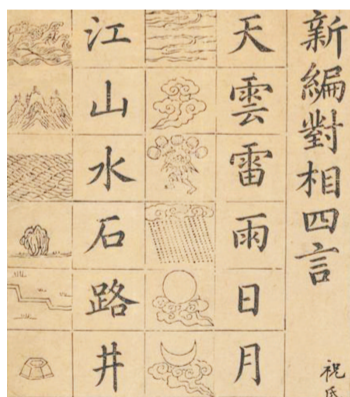 新編對相四言
祝氏
天雲雷雨日月
江山水石路井